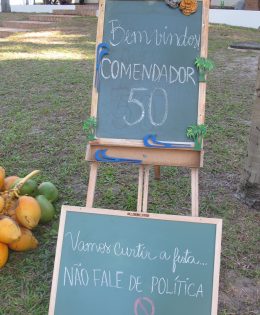 Bem vindos
COMENDADOR
50
Vamos curtir a festa...
NÃO FALE DE POLÍTICA